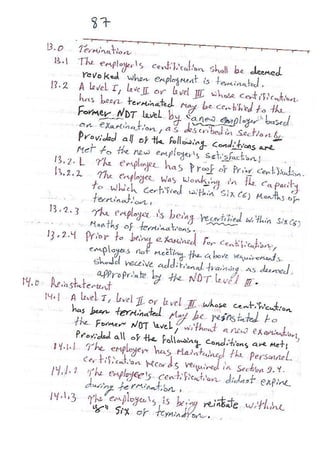 87
13.0 Termination
13.1 The employer's certification shall be deemed
revoked when employment is terminated.
13.2 A level I, level II or level III whose certification
has been terminated may be certified to the
Former NDT level by a new employer based
on examination, as described in section 6
Provided all of the following conditions are
met to the new employer's satisfaction:
13.2.1 The employee has Proof of Prior Certification.
13.2.2 The employee was working in the capacity
to which certified within six (6) months of
termination.
13.2.3 The employee is being recertified within six (6)
months of terminations.
13.2.4 Prior to being examined for certification,
employees not meeting the above requirements
should receive additional training as deemed
appropriate by the NDT level III.
14.0 Reinstatement
14.1 A level I, level II or level III whose certification
has been terminated may be reinstated to
the Former NDT level, without a new examination,
Provided all of the following conditions are met:
14.1.1 The employer has maintained the personnel
certification records required in section 9.4.
14.1.2 The employee's certification did not expire
during termination.
14.1.3 The employee is being reinstate within
six of termination.